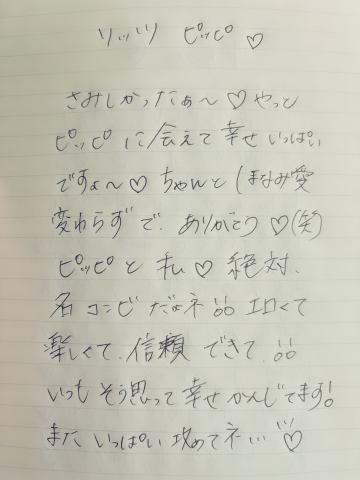 リッツ ピッピ ♡
さみしかったぁ〜♡やっと
ピッピに会えて幸せいっぱい
ですょ〜♡ちゃんと(まなみ愛
変わらずで、ありがとう♡(笑)
ピッピと私♡絶対、
名コンビだょネ!! エロくて
楽しくて、信頼できて!!
いつもそう思って幸せかんじてます!
またいっぱい攻めてネ…♡